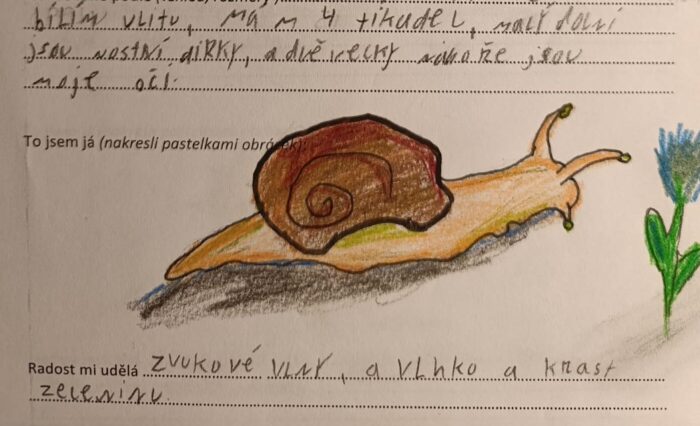 bílím vlitu, má m 4 tikadel, malý dolní
jsou nostní dírky, a dvě vecký nahoře jsou
moje oči.
To jsem já (nakresli pastelkami obrázek):
Radost mi udělá zvukové vlny, a vlhko a krast
zeleninu